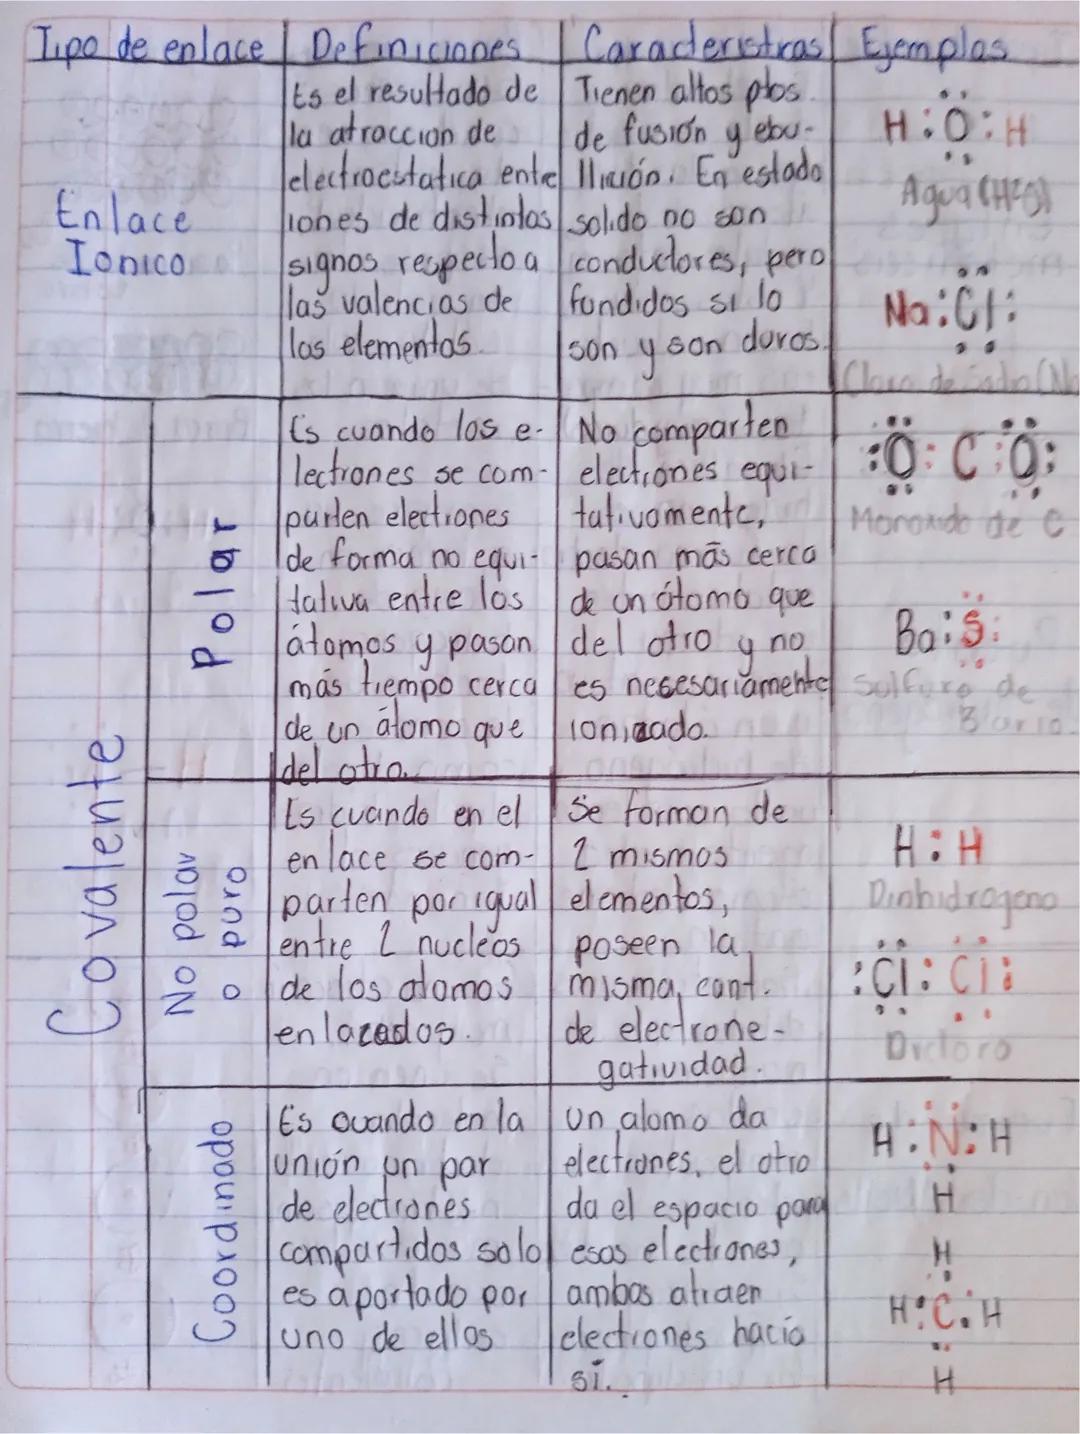 Tipo de enlace Definiciones Caracteristicas Ejemplos
Enlace
Ionico
Es el resultado de
la atraccion de
electroestatica entre
iones de distintos
signos respecto a
las valencias de
los elementos.
Tienen altos ptos.
de fusión y ebu-
llición. En estado
solido no son
conductores, pero
fundidos si lo
son y son duros.
H:O:H
Agua (H2O)
Na:Cl:
Cloro de Sodio (Na
Covalente
Polar
Es cuando los e-
lectrones se com-
parten electrones
de forma no equi-
tativa entre los
átomos y pasan
más tiempo cerca
de un átomo que
del otro.
No comparten
electrones equi-
tativamente,
pasan más cerca
de un átomo que
del otro y no
es nesesariamente
ionizado.
:O: C :O:
Monoxido de C
Ba:S:
Sulfuro de
Bario.
No polar
o puro
Es cuando en el
enlace se com-
parten por igual
entre 2 nucleos
de los atomos
enlazados.
Se forman de
2 mismos
elementos,
poseen la
misma cant.
de electrone-
gatividad.
H:H
Dinhidrogeno
:Cl:Cl:
Dicloro
Coordinado
Es cuando en la
unión un par
de electrones
compartidos solo
es aportado por
uno de ellos
Un atomo da
electrones, el otro
da el espacio para
esos electrones,
ambos atraen
electrones hacia
sí.
H:N:H
H
H
H:C:H
H